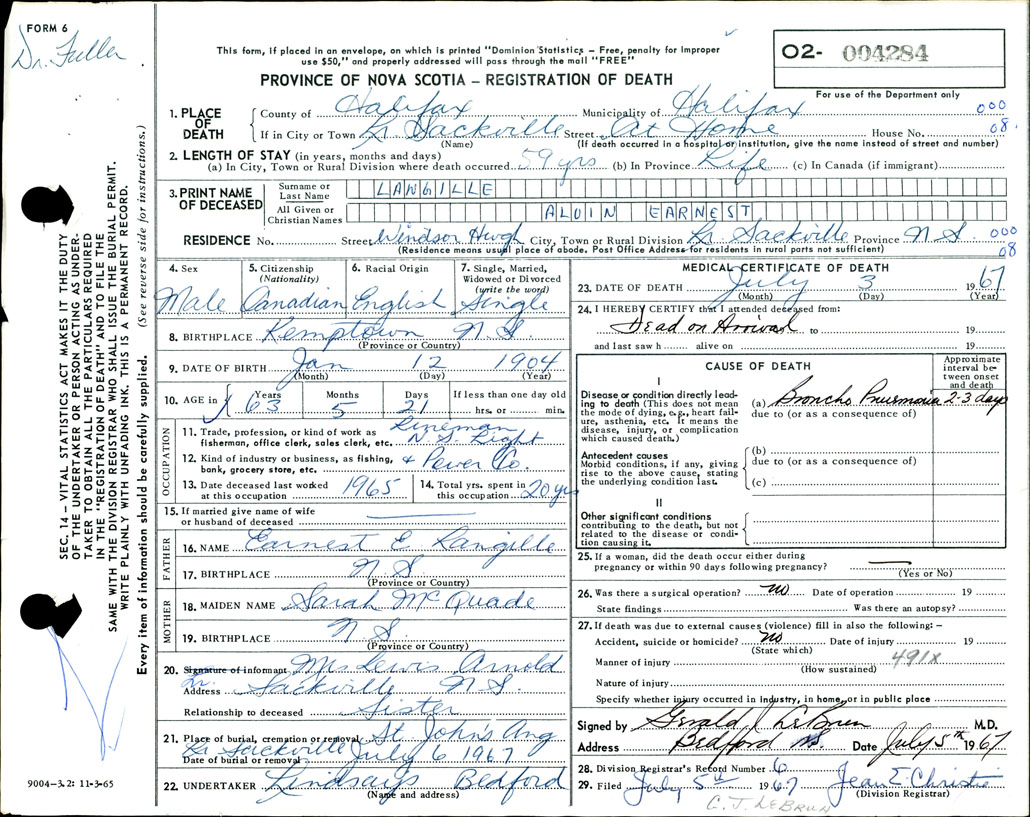 FORM 6
Dr. Fuller
This form, if placed in an envelope, on which is printed "Dominion Statistics – Free, penalty for improper
use $50," and properly addressed will pass through the mail "FREE"
PROVINCE OF NOVA SCOTIA – REGISTRATION OF DEATH
O2- 004284
For use of the Department only
1. PLACE OF DEATH
County of Halifax Municipality of Halifax 000
If in City or Town Lr Sackville Street At Home House No. 08
(Name) (If death occurred in a hospital or institution, give the name instead of street and number)
2. LENGTH OF STAY (in years, months and days)
(a) In City, Town or Rural Division where death occurred 59 yrs (b) In Province Life (c) In Canada (if immigrant)
3. PRINT NAME OF DECEASED
Surname or Last Name LANGILLE
All Given or Christian Names ALVIN EARNEST
RESIDENCE No. Street Windsor Hwgh City, Town or Rural Division Lr Sackville Province N S 000
(Residence means usual place of abode. Post Office Address for residents in rural parts not sufficient) 08
4. Sex Male
5. Citizenship (Nationality) Canadian
6. Racial Origin English
7. Single, Married, Widowed or Divorced (write the word) Single
8. BIRTHPLACE Kemptown N S
(Province or Country)
9. DATE OF BIRTH Jan 12 1904
(Month) (Day) (Year)
10. AGE in Years 63 Months 5 Days 21 If less than one day old
hrs. or min.
OCCUPATION
11. Trade, profession, or kind of work as fisherman, office clerk, sales clerk, etc. Lineman N.S. Light
12. Kind of industry or business, as fishing, bank, grocery store, etc. & Power Co.
13. Date deceased last worked at this occupation 1965
14. Total yrs. spent in this occupation 20 yrs
15. If married give name of wife or husband of deceased
FATHER
16. NAME Earnest E Langille
17. BIRTHPLACE N.S.
(Province or Country)
MOTHER
18. MAIDEN NAME Sarah McQuade
19. BIRTHPLACE N S
(Province or Country)
20. Signature of informant Mrs Lewis Arnold
Address Lr. Sackville N S.
Relationship to deceased Sister
21. Place of burial, cremation or removal St John's Ang
Lr Sackville July 6 1967
Date of burial or removal
22. UNDERTAKER Lindsays Bedford
(Name and address)
MEDICAL CERTIFICATE OF DEATH
23. DATE OF DEATH July 3 1967
(Month) (Day) (Year)
24. I HEREBY CERTIFY that I attended deceased from:
Dead on Arrival to 19
and last saw h alive on 19
CAUSE OF DEATH
Approximate interval between onset and death
I
Disease or condition directly leading to death (This does not mean the mode of dying, e.g., heart failure, asthenia, etc. It means the disease, injury, or complication which caused death.)
(a) Broncho Pneumonia 2-3 days
due to (or as a consequence of)
Antecedent causes
Morbid conditions, if any, giving rise to the above cause, stating the underlying condition last.
(b)
due to (or as a consequence of)
(c)
II
Other significant conditions
contributing to the death, but not related to the disease or condition causing it.
25. If a woman, did the death occur either during
pregnancy or within 90 days following pregnancy?
(Yes or No)
26. Was there a surgical operation? no Date of operation 19
State findings Was there an autopsy?
27. If death was due to external causes (violence) fill in also the following: –
Accident, suicide or homicide? no Date of injury 19
(State which)
Manner of injury 491X
(How sustained)
Nature of injury
Specify whether injury occurred in industry, in home, or in public place
Signed by Gerald J LeBrun M.D.
Address Bedford NS Date July 5th 1967
28. Division Registrar's Record Number 6
29. Filed July 5th 1967 Jean E. Christie
(Division Registrar)
C. J. LeBrun
SEC. 14 – VITAL STATISTICS ACT MAKES IT THE DUTY
OF THE UNDERTAKER OR PERSON ACTING AS UNDER-
TAKER TO OBTAIN ALL THE PARTICULARS REQUIRED
IN THE "REGISTRATION OF DEATH" AND TO FILE THE
SAME WITH THE DIVISION REGISTRAR WHO SHALL ISSUE THE BURIAL PERMIT.
WRITE PLAINLY WITH UNFADING INK. THIS IS A PERMANENT RECORD.
Every item of information should be carefully supplied. (See reverse side for instructions.)
9004-3.2: 11-3-65